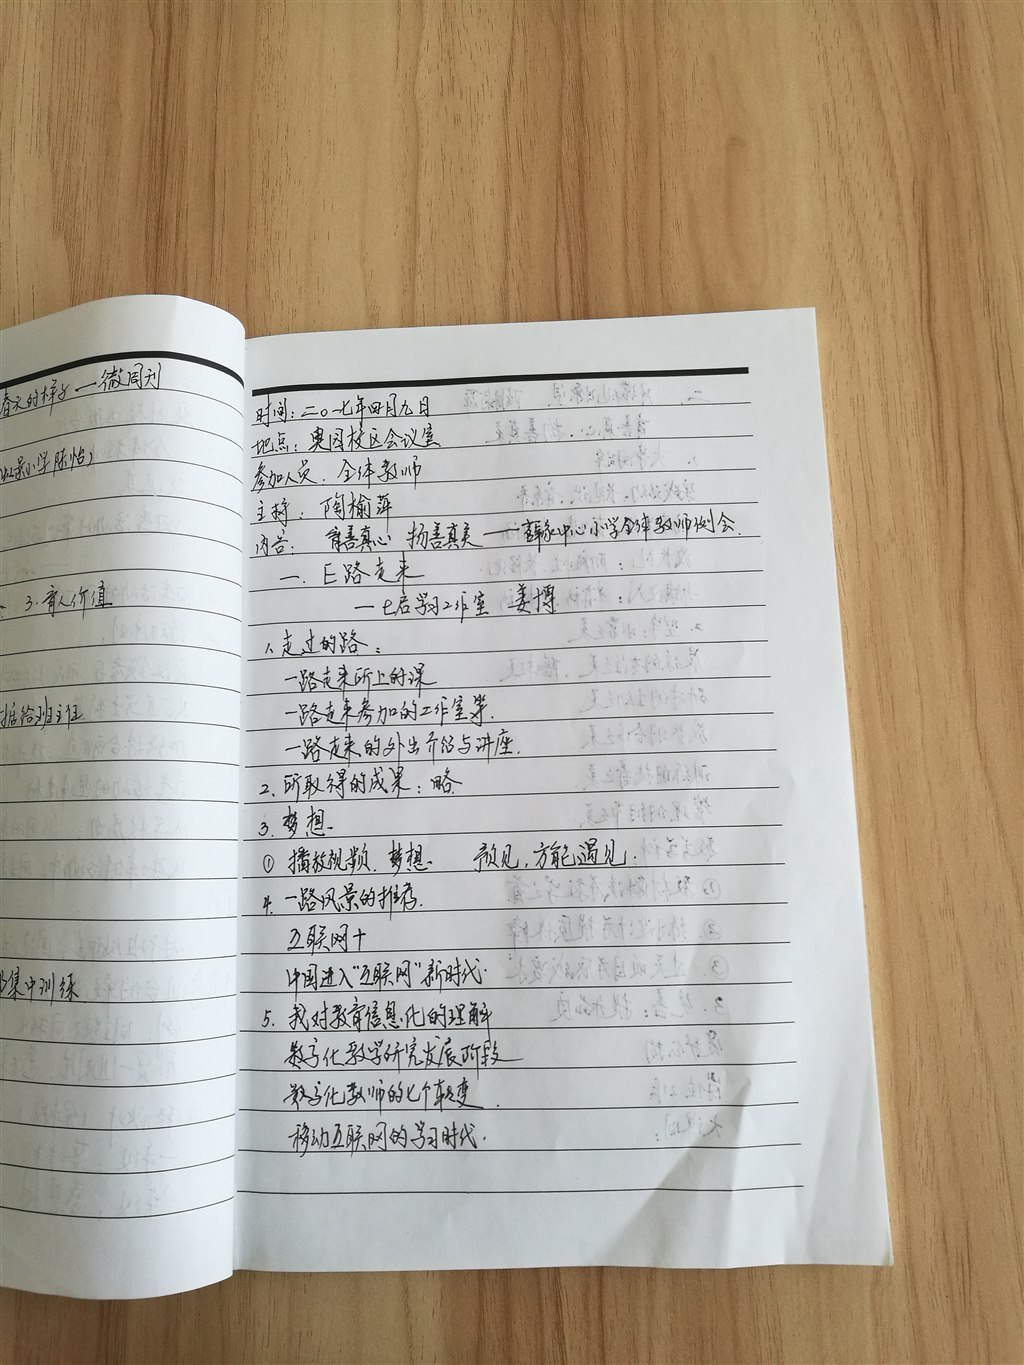 春天的样子一微周刊
小学陈怡)
3.育人价值
班主任
集中训练
时间:二〇一七年四月九日
地点:奥园校区会议室
参加人员:全体教师
主持:陶榆萍
内容: 育善真心 扬善真美——薛家中心小学全体教师例会.
一、E路走来
—七色学习工作室 姜博
1.走过的路:
一路走来所上的课
一路走来参加的工作室等.
一路走来的外出介绍与讲座.
2.所取得的成果:略.
3.梦想.
①播放视频.梦想. 预见,方能遇见.
4.一路风景的推荐.
互联网十
中国进入"互联网"新时代.
5.我对教育信息化的理解
数字化教学研究发展阶段
数字化教师的七个转变.
移动互联网的学习时代.